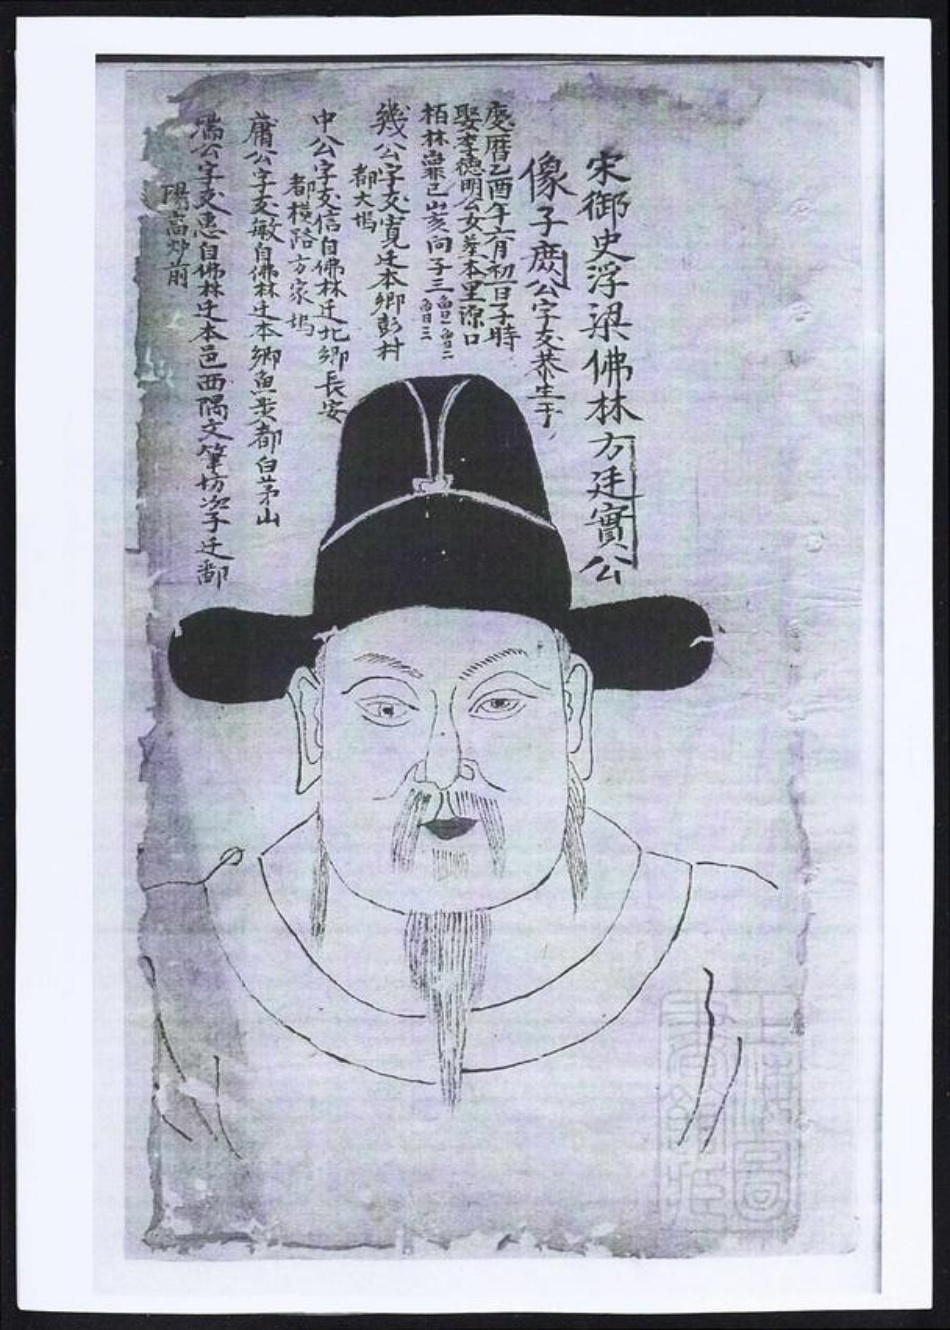 宋御史浮梁佛林方廷實公
像子庶公字交恭生于
慶曆乙酉年六月初一日子時
娶李德明公女葬本里源口
栢林巳山亥向子三
幾公字交寬迁本鄉彭村
都大塢
中公字交信自佛林迁北鄉長安
都橫路方家塢
蕭公字交敏自佛林迁本鄉魚都白茅山
公字交惠自佛林迁本邑西隅文筆坊次子迁鄱
陽高前